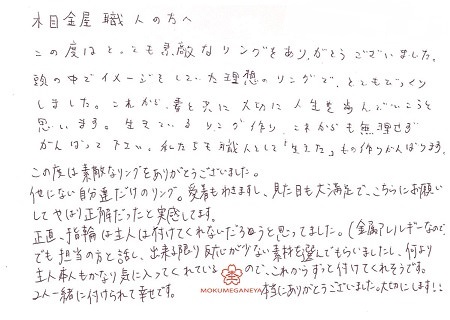 木目金屋 職人の方へ
この度はとっても素敵なリングをありがとうございました。
頭の中でイメージをしていた理想のリングで、とてもびっくり
しました。これから、妻と共に大切に人生を歩んでいこうと
思います。生きているリング作り、これからも無理せず
がんばって下さい。私たちも職人として「生きた」もの作りがんばります。
この度は素敵なリングをありがとうございました。
他にない自分達だけのリング。愛着もわきますし、見た目も大満足で、こちらにお願い
してやはり正解だったと実感してます。
正直、指輪は主人は付けてくれないだろうなぁと思ってました。(金属アレルギーなので、
でも担当の方と話し、出来る限り反応が少ない素材を選んでもらいましたし、何より
主人本人もかなり気に入ってくれているので、これからずっと付けてくれそうです。
2人一緒に付けられて幸せです。 本当にありがとうございました。大切にします!!
MOKUMEGANEYA